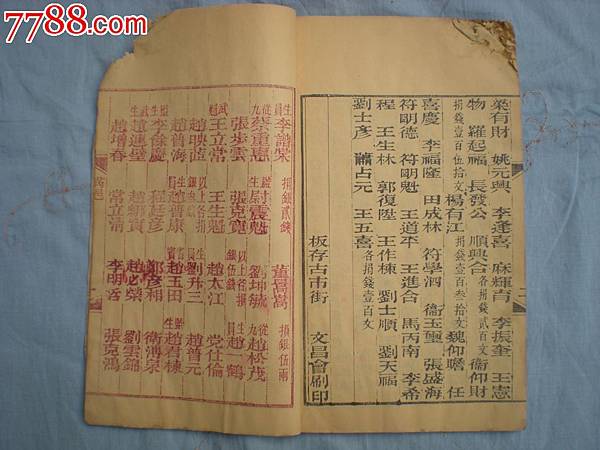 7788.com
梁有財 姚元興 李逢喜 麻輝育 李振奎 王憲
捐錢壹百伍拾文 楊有江 捐錢壹百叁拾文 魏仰瞻 任
物 羅起福 長發公 順興合 各捐錢貳百文 衞仰財
喜慶 李福隆 田成林 符學泗 衞玉璽 張盛海
符明德 符明魁 王道平 王進合 馬丙南 李希
程 王生林 郭復陞 王作棟 劉士順 劉天福
劉士彥 蕭占元 王五喜 各捐錢壹百文
板存古市街 文昌會刷印
生員 李譜榮 捐銀貳錢 董壽嵩 捐銀伍兩
從九 蔡重惠 尉震魁 劉坤毓 從九 趙松茂
張步雲 張克寬 捐銀伍錢 趙一鶴
武 王立常 王生魁 趙太江 黨仕倫
趙映藍 以上各捐 劉升三 趙普元
趙普海 趙普康 趙玉田 趙君棟
監生 李餘慶 程庭彥 鄭彥和 衞溥泉
武生 趙進璧 劉雲錦
趙增春 常立清 李明 張克鴻